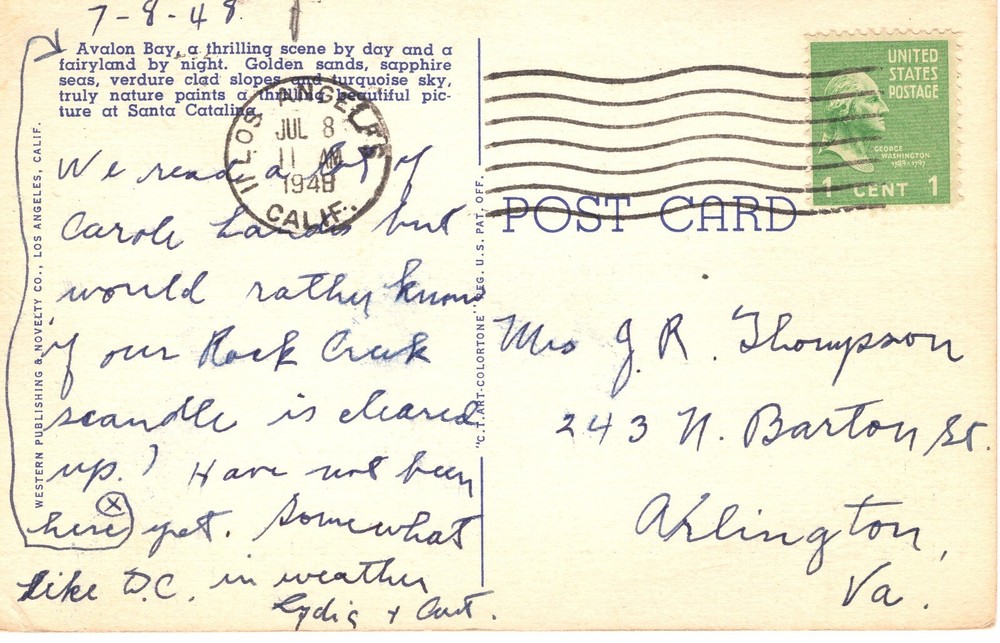 7-8-48.
Avalon Bay, a thrilling scene by day and a
fairyland by night. Golden sands, sapphire
seas, verdure clad slopes and turquoise sky,
truly nature paints a thrilling beautiful pic-
ture at Santa Catalina.
We read a lot of
Carole Landis but
would rather know
if our Rock Creek
scandle is cleared
up? Have not been
here yet. Somewhat
like D.C. in weather
Lydia & Curt.
WESTERN PUBLISHING & NOVELTY CO., LOS ANGELES, CALIF.
"C.T. ART-COLORTONE" REG. U.S. PAT. OFF.
LOS ANGELES
JUL 8
11 AM
1948
CALIF.
POST CARD
UNITED
STATES
POSTAGE
GEORGE
WASHINGTON
1789-1797
1 CENT 1
Mrs J. R. Thompson
243 N. Barton St.
Arlington,
Va.